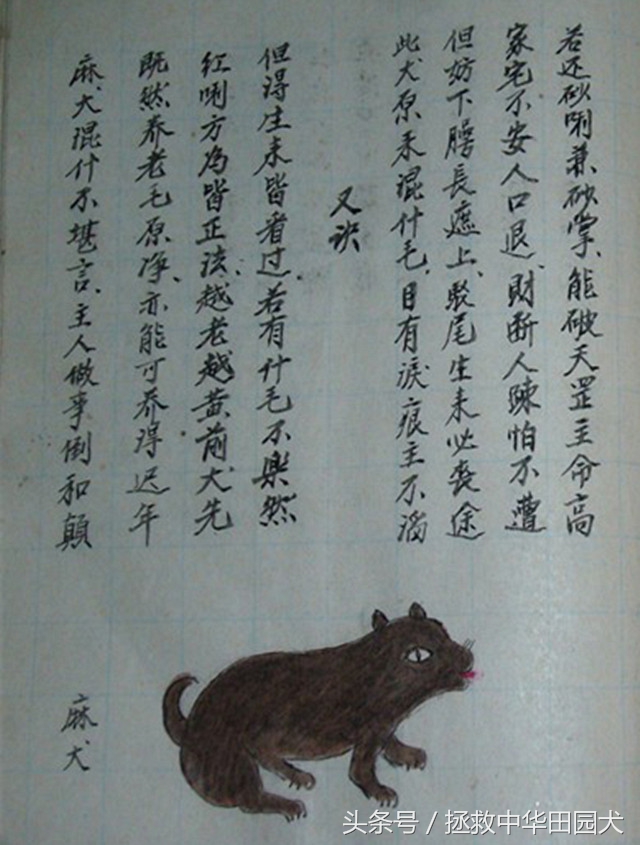 若还砂唎兼砂掌、能破天罡主命高
家宅不安人口退、财断人疎怕不遭
但妨下腭長遮上、駁尾生来必丧途
此犬原来混什毛、目有淚痕主不滔
又诀
但得生来皆看过、若有什毛不樂然
红唎方为皆正法、越老越黄前犬先
既然养老毛原净、亦能可养得迟年
麻犬混什不堪言、主人做事倒和顛
麻犬
头条号／拯救中华田园犬